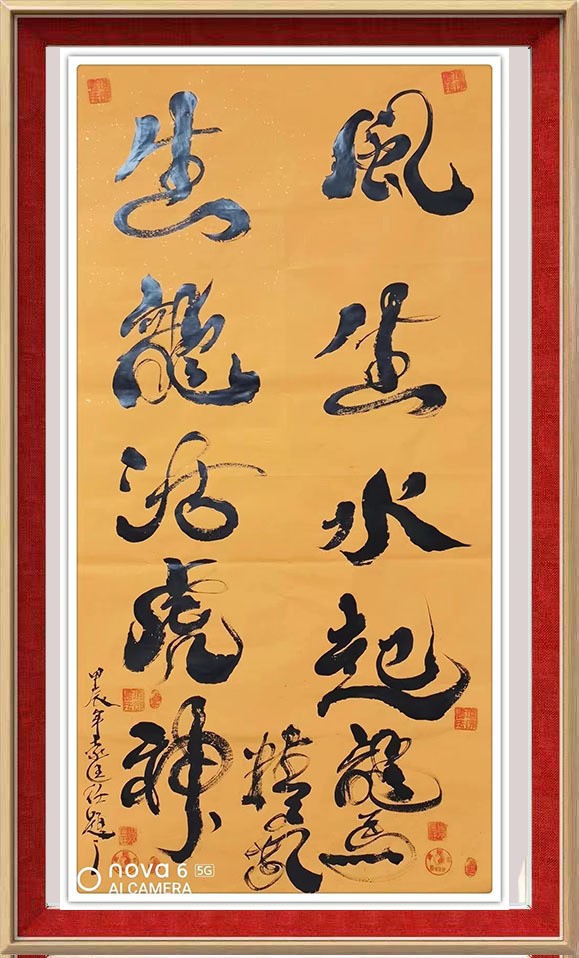 風生水起龍馬
精氣
生龍活虎神
甲辰年
nova 6 5G
AI CAMERA